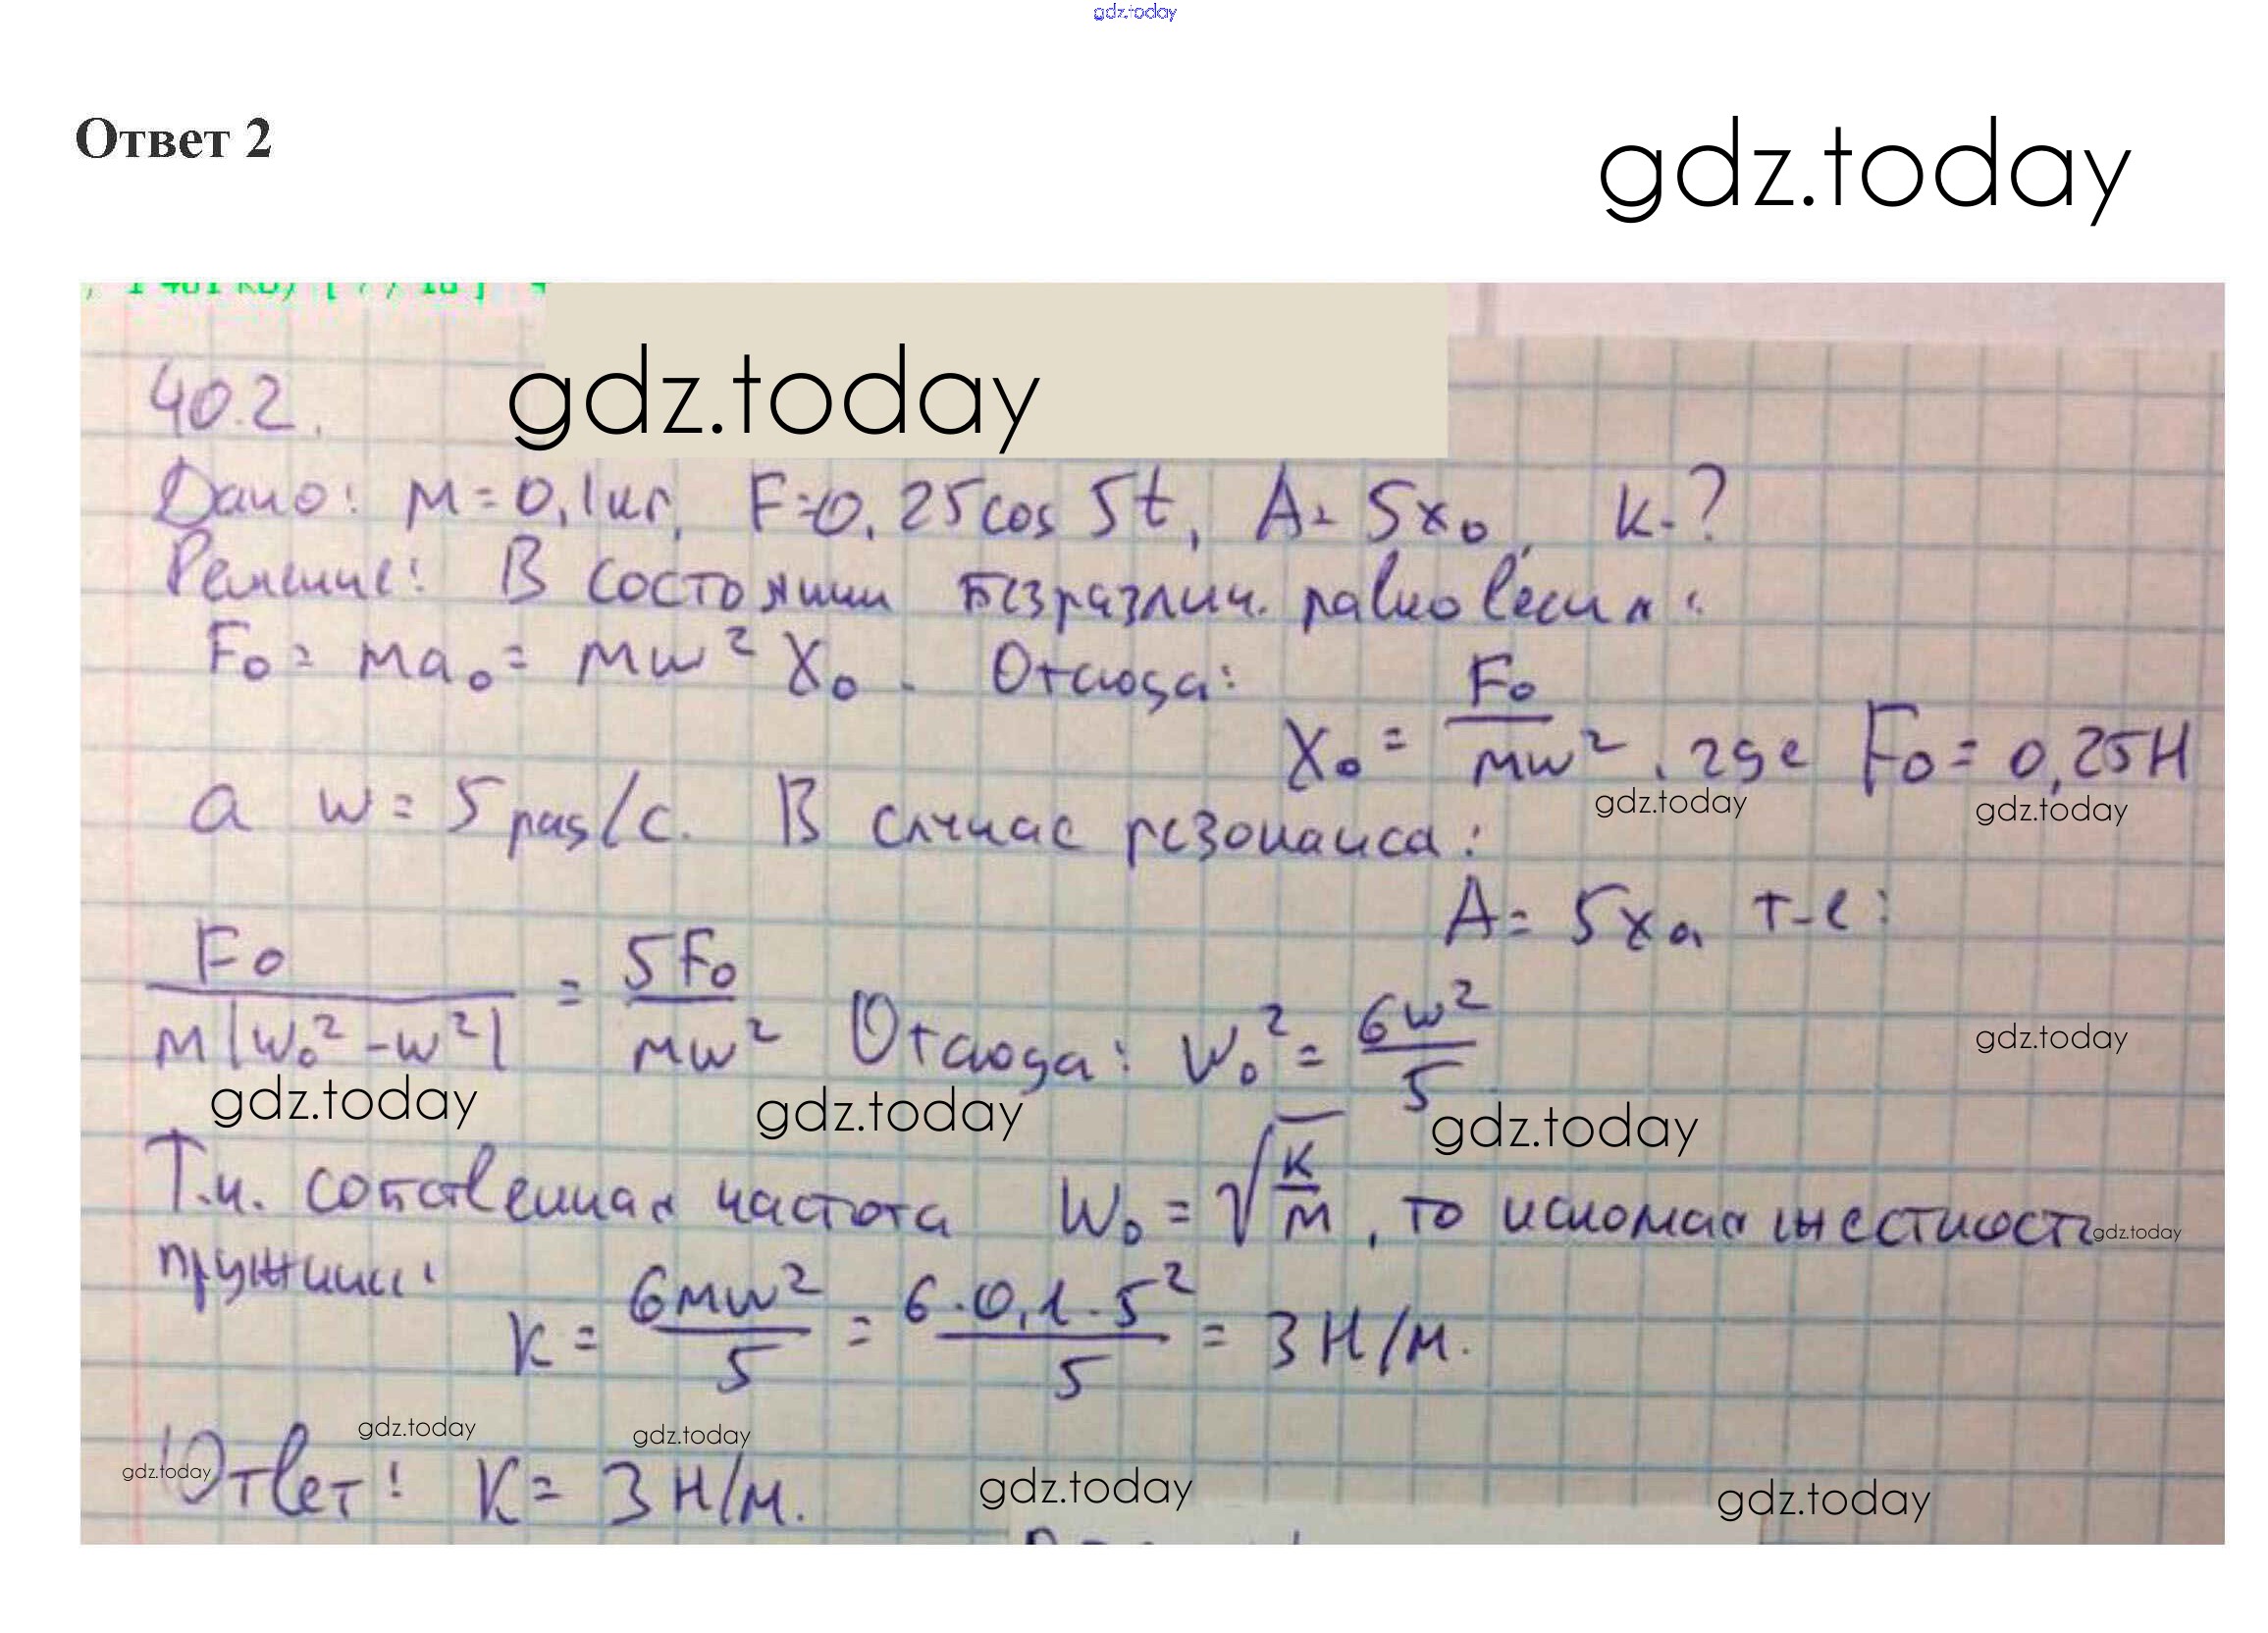 gdz.today
Ответ 2
gdz.today
gdz.today
40.2.
Дано: m = 0,1 кг, F = 0,25 cos 5t, A = 5x₀, k - ?
Решение: В состоянии безразлич. равновесия:
F₀ = ma₀ = mω² X₀. Отсюда:
X₀ = F₀ / mω², где F₀ = 0,25 Н
gdz.today gdz.today
а ω = 5 рад/с. В случае резонанса:
A = 5x₀, т-е:
F₀ / m|ω₀² - ω²| = 5F₀ / mω² Отсюда: ω₀² = 6ω² / 5
gdz.today
gdz.today gdz.today gdz.today
Т.к. собственная частота ω₀ = √k/m, то искомая жесткость
gdz.today
пружины:
k = 6mω² / 5 = 6·0,1·5² / 5 = 3 Н/м.
gdz.today gdz.today
Ответ: k = 3 Н/м.
gdz.today gdz.today gdz.today